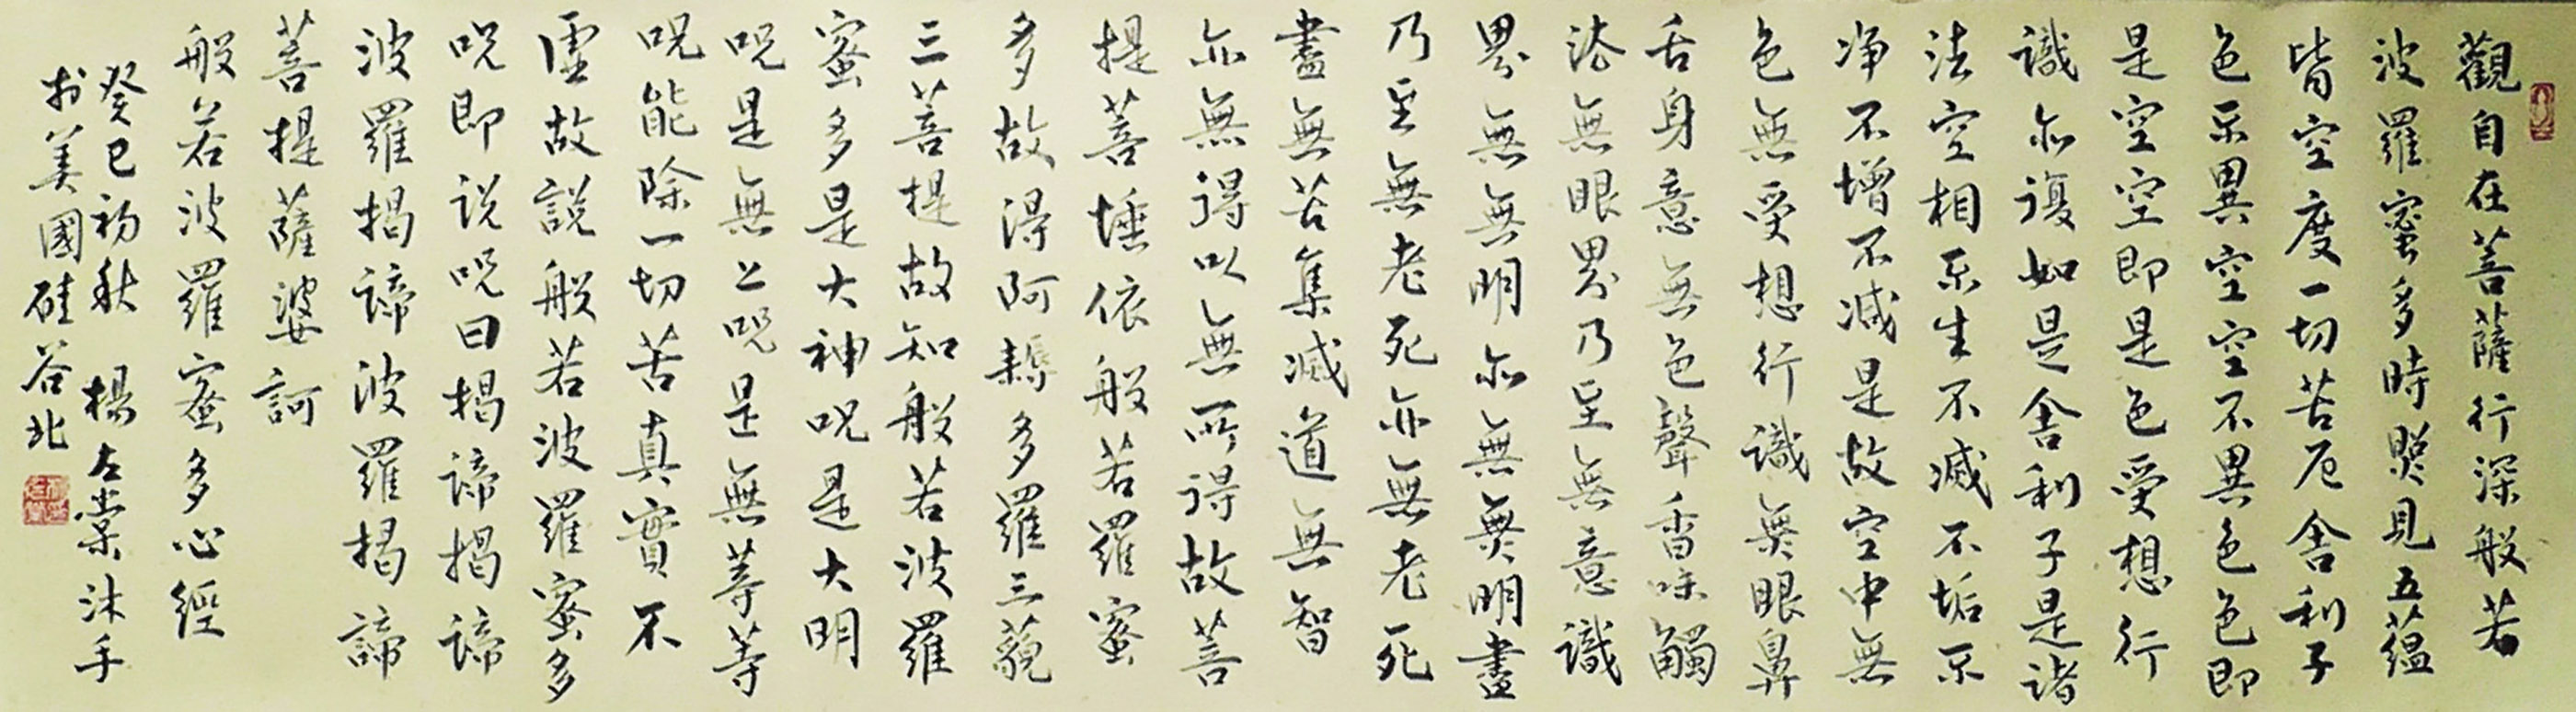 觀自在菩薩行深般若
波羅蜜多時照見五蘊
皆空度一切苦厄舍利子
色不異空空不異色色即
是空空即是色受想行
識亦復如是舍利子是諸
法空相不生不滅不垢不
淨不增不減是故空中無
色無受想行識無眼鼻
舌身意無色聲香味觸
法無眼界乃至無意識
界無無明亦無無明盡
乃至無老死亦無老死
盡無苦集滅道無智
亦無得以無所得故菩
提菩埵依般若羅蜜
多故得阿耨多羅三藐
三菩提故知般若波羅
蜜多是大神呪是大明
呪是無上呪是無等等
呪能除一切苦真實不
虛故說般若波羅蜜多
呪即説呪曰揭諦揭諦
波羅揭諦波羅揭諦
菩提薩婆訶
般若波羅蜜多心經
癸巳初秋 楊左棠沐手
於美國硅谷北